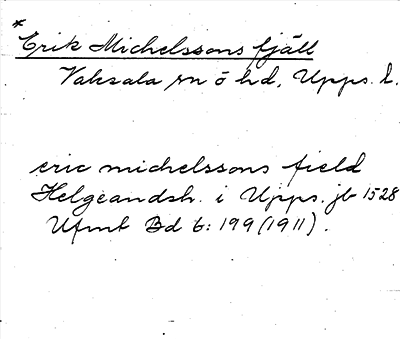 *
Erik Michelssons fjäll
Vaksala sn o hd, Upps. l.
eric michelssons field
Helgeandsh. i Upps. jb 1528
Ufmt Bd 6: 199 (1911).